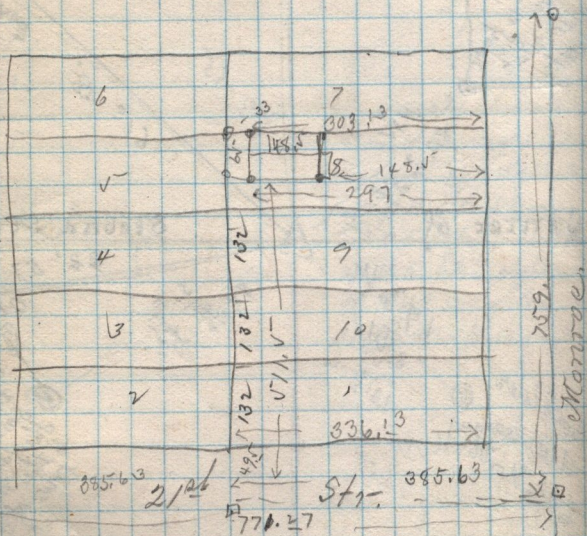 6 7
33
303.13
148.5
5 8 148.5
297
132
4 9
132
3 10
511.5
132
2 1
336.13
49.5
385.63 21st Str. 385.63
771.27
759.
Monroe